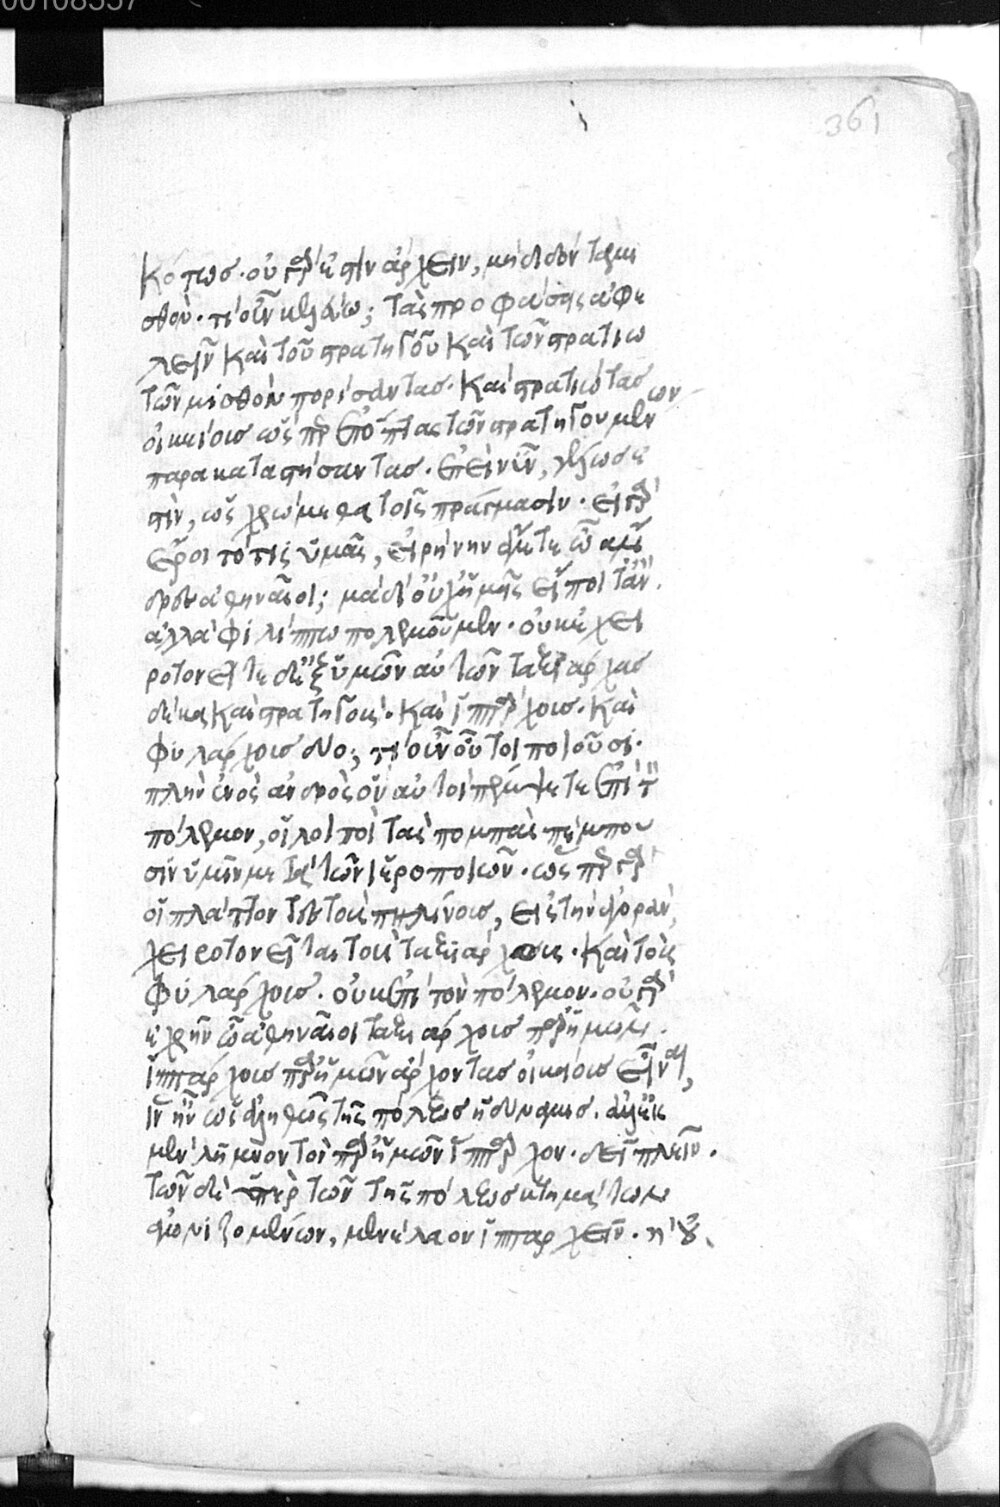 00108557
361
κότως. οὐ γάρ ἐστιν ἄρχειν, μὴ διδόντα μι
σθόν. τί οὖν κελεύω; τὰς προφάσεις ἀφε
λεῖν καὶ τοῦ στρατηγοῦ καὶ τῶν στρατιω
τῶν μισθὸν πορίσαντας. καὶ στρατιώτας
οἰκείους ὥσπερ ἐπόπτας τῶν στρατηγουμένων
παρακαταστήσαντας. ἐπεὶ νῦν, γέλως ἐ
στὶν, ὡς χρώμεθα τοῖς πράγμασιν. εἰ γὰρ
ἔροιτό τις ὑμᾶς, εἰρήνην ἄγετε ὦ ἄν
δρες ἀθηναῖοι; μὰ δί' οὐχ ἡμεῖς εἴποιτ' ἄν.
ἀλλὰ φιλίππω πολεμοῦμεν. οὐκ ἐχει
ροτονεῖτε δὲ ἐξ ὑμῶν αὐτῶν ταξιάρχας
δέκα καὶ στρατηγούς. καὶ ἱππάρχους. καὶ
φυλάρχους δύο; τί οὖν οὗτοι ποιοῦσι.
πλὴν ἑνὸς ἀνδρὸς ὃν αὐτοὶ πέμψητε ἐπὶ τὸν
πόλεμον, οἱ λοιποὶ τὰς πομπὰς πέμπου
σιν ὑμῖν μετὰ τῶν ἱεροποιῶν. ὥσπερ γὰρ
οἱ πλάττοντες τοὺς πηλίνους, εἰς τὴν ἀγορὰν,
χειροτονεῖται τοὺς ταξιάρχους. καὶ τοὺς
φυλάρχους. οὐκ ἐπὶ τὸν πόλεμον. οὐ γὰρ
ἐχρῆν ὦ ἀθηναῖοι ταξιάρχους παρ' ἡμῶν.
ἱππάρχους παρ' ἡμῶν ἄρχοντας οἰκείους εἶναι,
ἵν' ἦν ὡς ἀληθῶς τῆς πόλεως ἡ δύναμις. ἀλλ' εἰς
μὲν λῆμνον τὸν παρ' ἡμῶν ἵππαρχον. δεῖ πλεῖν.
τῶν δὲ ὑπὲρ τῶν τῆς πόλεως κτημάτων
ἀγωνιζομένων, μενέλαον ἱππαρχεῖν.